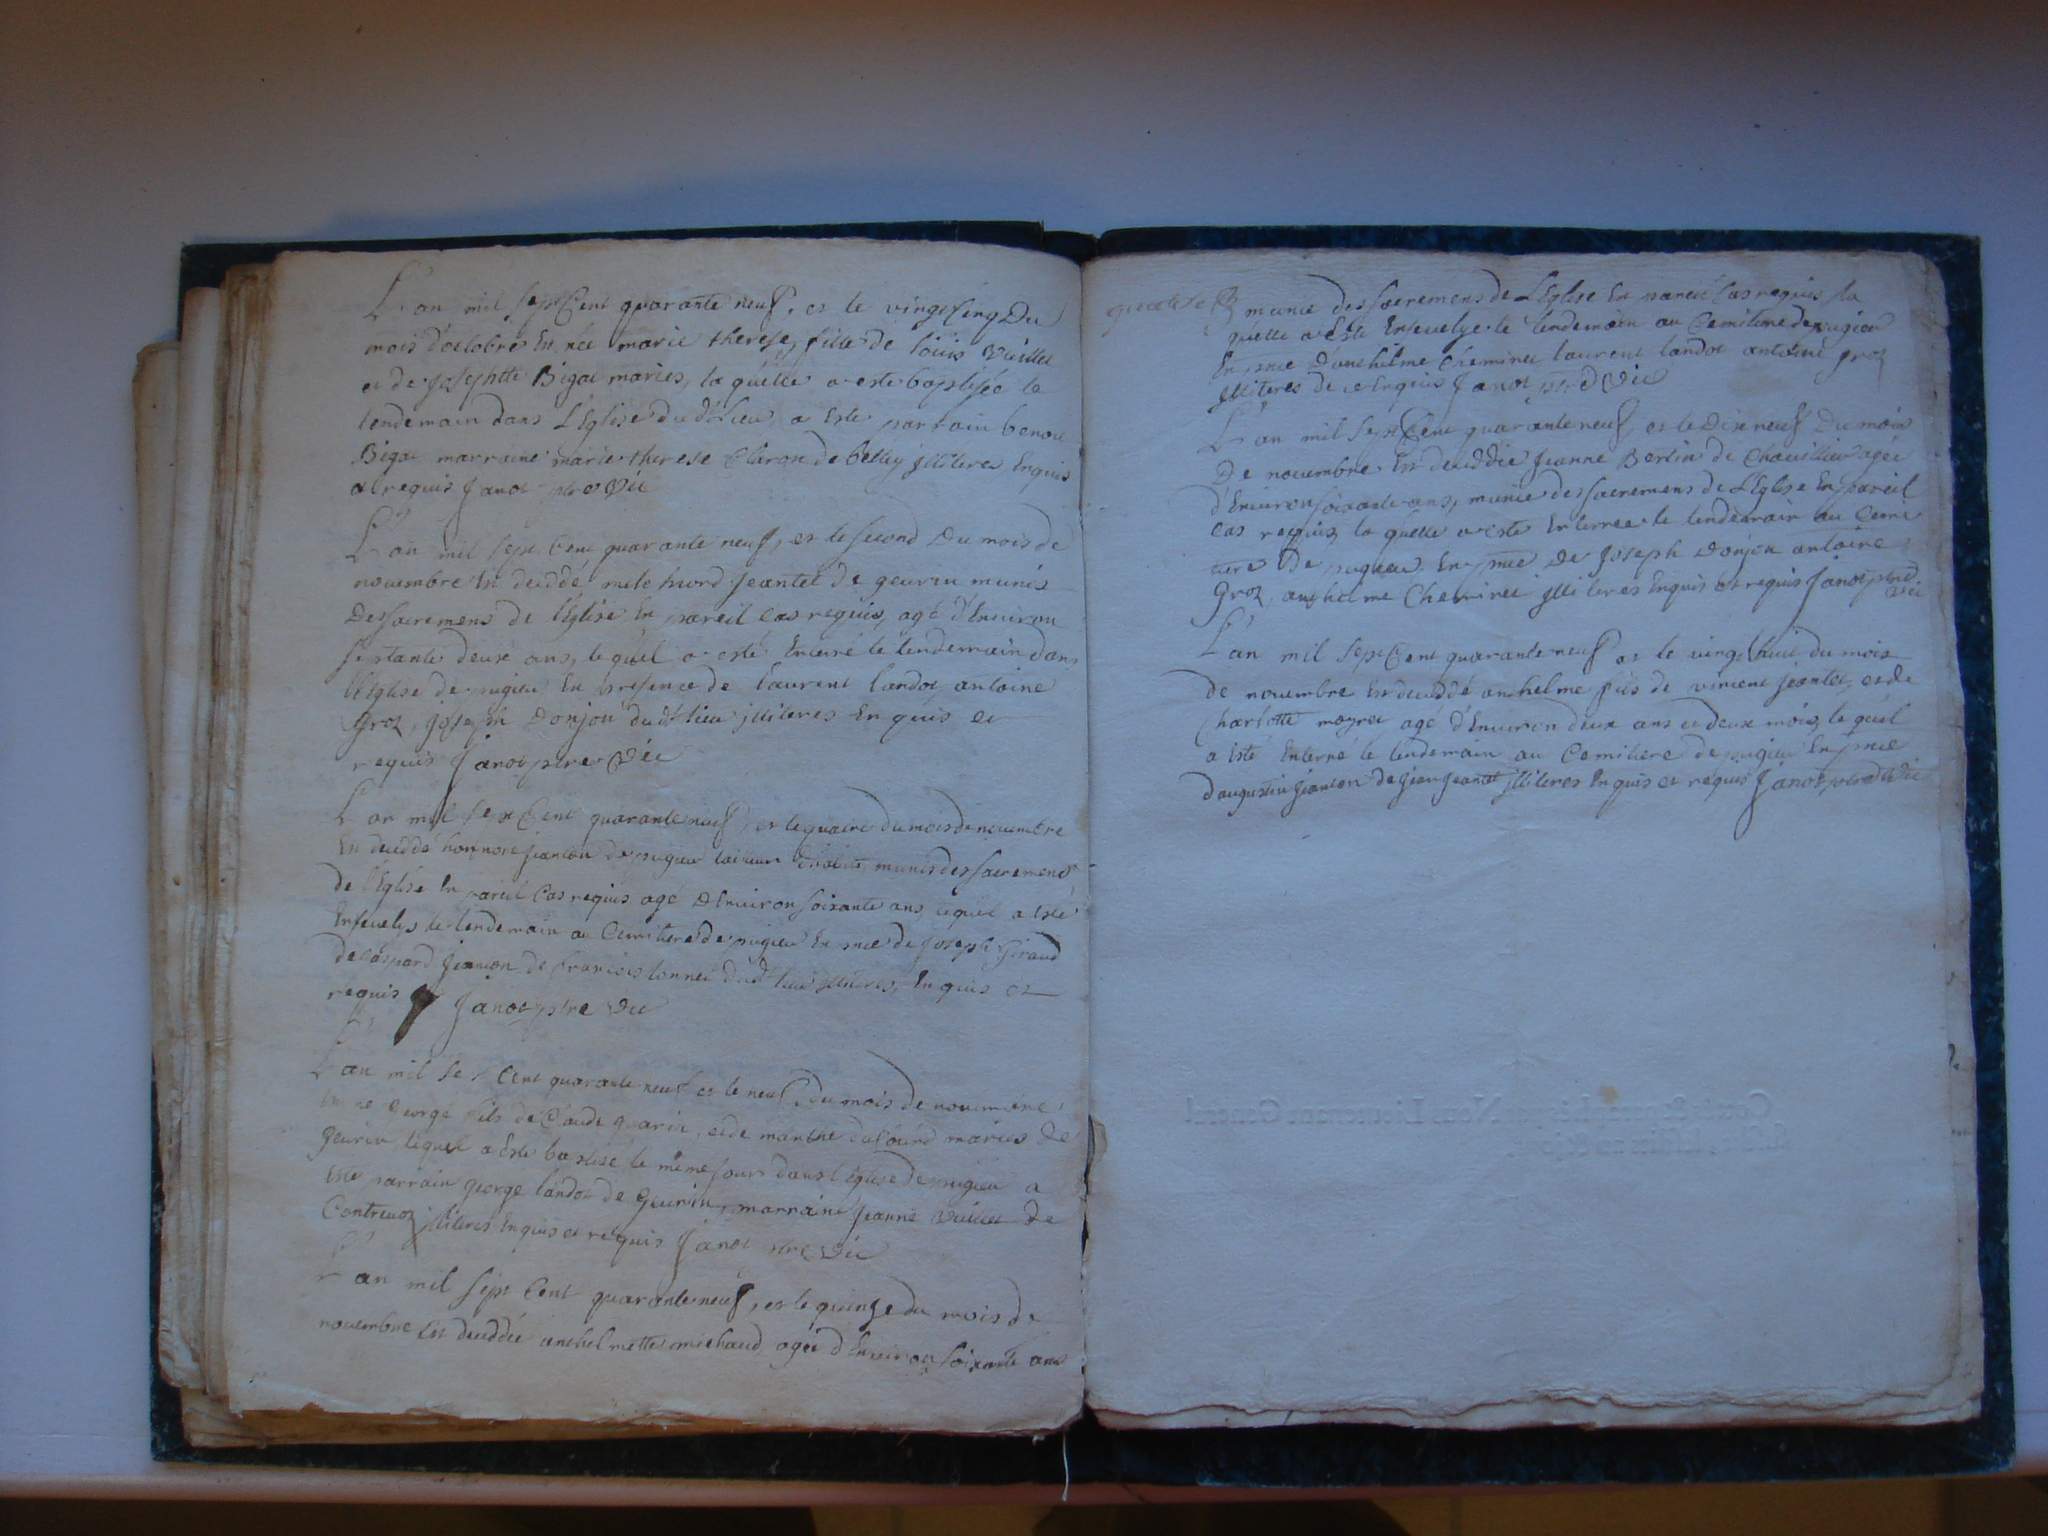 L'an mil sept Cent quarante neuf, et le vingt cinq Du
mois d'octobre En née marie therese, fille de louis Vuillet
et de Josephtte Bigot mariés, la quelle a este baptisée le
lendemain dans L'Eglise du dt lieu, a Este parrain benoit
Bigot marraine marie therese Claron de belley illiteres Enquis
et requis Janot ptre Vic
L'an mil sept Cent quarante neuf, et le second Du mois de
novembre En decédé Jeantet de geurin munis
Des sacremens de l'Eglise En pareil cas requis, agé d'Environ
septante deux ans, lequel a esté Enteré le lendemain dans
l'Eglise de pugieu En presence de laurent landot antoine
Groz, joseph Donjon dudt lieu illiteres En quis et
requis Janot ptre Vic
L'an mil sept Cent quarante neuf, et le quatre du mois de novembre
En decedé honnore jeanton de pugieu tailleur d'habits, munis des sacremens
de l'Eglise En pareil Cas requis agé D'Environ soixante ans, lequel a Esté
Ensevelis le lendemain au Cemitiere de pugieu En pnce de joseph Giraud
de Gaspard jeanton de francois bonnet dudt lieu illiteres, En quis et
requis Janot ptre Vic
L'an mil sept Cent quarante neuf et le neuf du mois de novembre
En né george fils de Claude guarin, et de marthe mariés de
Geurin, lequel a Esté baptisé le même jour dans l'Eglise de pugieu a
Esté parrain george landot de Geurin, marraine jeanne Vuillet de
Contrevoz illiteres Enquis et requis Janot ptre Vic
L'an mil sept Cent quarante neuf, et le quinze du mois de
novembre Est decedée anthelmette michaud agée d'Environ soixante ans
munie des sacremens de L'Eglise En pareil Cas requis, la
quelle a Esté Ensevelye le lendemain au Cemitiere de pugieu
En pnce D'anthelme Cheminet laurent landot antoine groz
illiteres de ce Enquis Janot ptre Vic
L'an mil sept Cent quarante neuf, et le Dix neuf Du mois
De novembre Est decedée Jeanne Bertin de Chavillieu agée
d'Environ soixante ans, munie des sacremens de L'Eglise En pareil
cas requis, la quelle a esté Enterrée le lendemain au Cemi
tiere de pugieu En pnce de Joseph Donjon antoine
Groz, anthelme Cheminet illiteres Enquis et requis Janot ptre
Vic
L'an mil sept Cent quarante neuf et le vingt huit du mois
de novembre Est decedé anthelme fils de vincent jeantet, et de
Charlotte moyret agé d'Environ deux ans et deux mois, le quel
a Esté Enterré le lendemain au Cemitiere de pugieu En pnce
d'augustin jeanton de jean jeantet illiteres Enquis et requis Janot ptre Vic